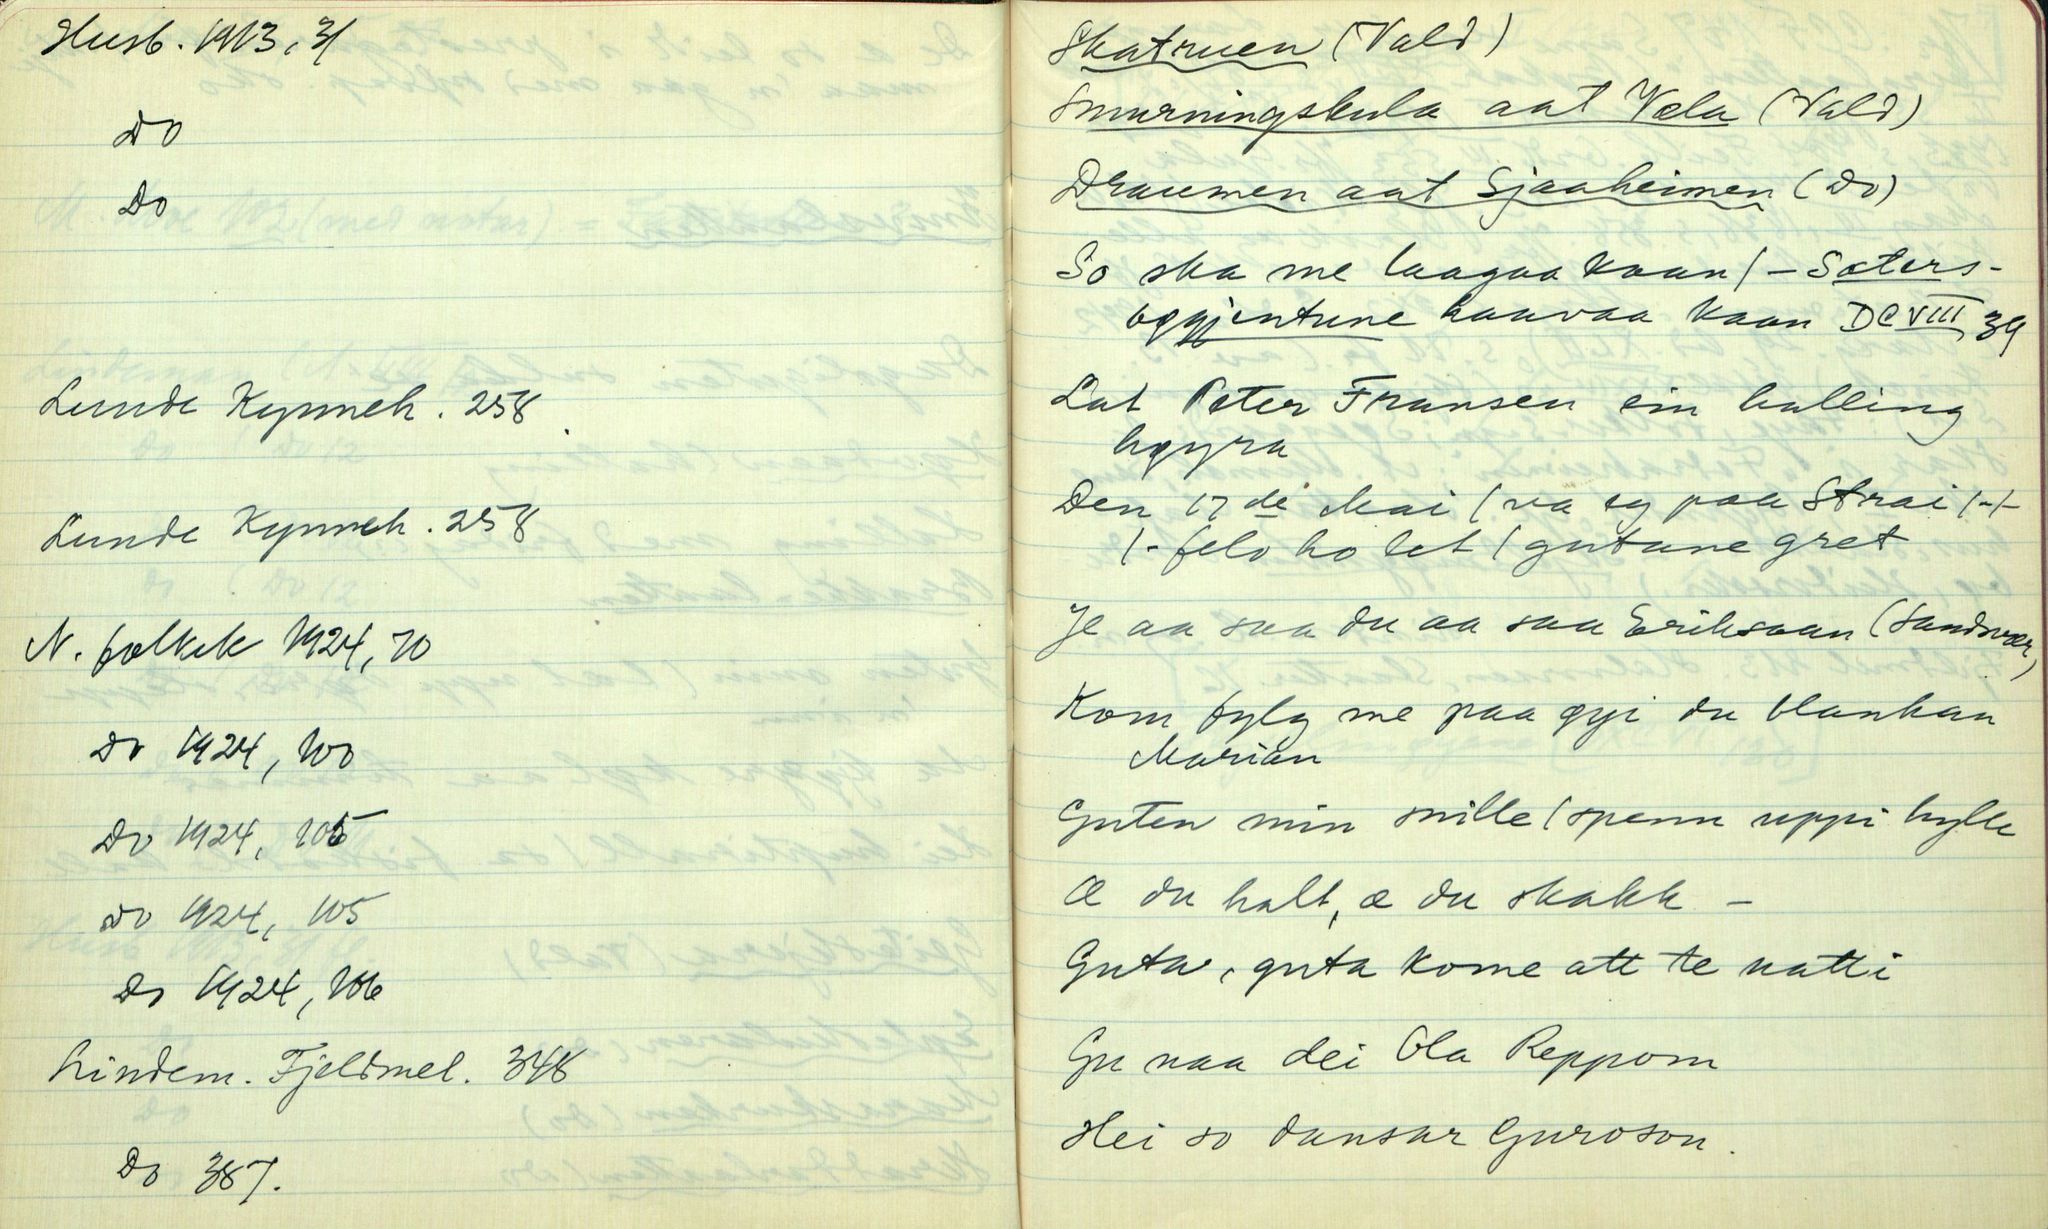 Husb. 1913, 31
Do
Do
Lunde Kynneh. 258
Lunde Kynneh. 258
N. folkek 1924, 70
Do 1924, 100
Do 1924, 105
Do 1924, 105
Do 1924, 106
Lindem. Fjeldmel. 348
Do 387.
Skatruen (Vald)
Smurningskula aat Vela (Vald)
Draumen aat Sjaaheimen (Do)
So ska me laagaa kaan / - Sæters-
byggjentune haavaa kaan DC VIII 39
Lat Peter Fransen ein halling
høyra
Den 17de Mai / va eg paa Strai /-/-
/- felo ho let / gutane gret
Je aa saa du aa saa Eriksaan (Sandsvær)
Kom fylg me paa øyi du blankan
Marian
Guten min snille / spenn uppi hylle
Æ du halt, æ du skakk -
Guta, guta kome att te natti
Gu naa dei Ola Reppom
Hei so dansar Guroson.